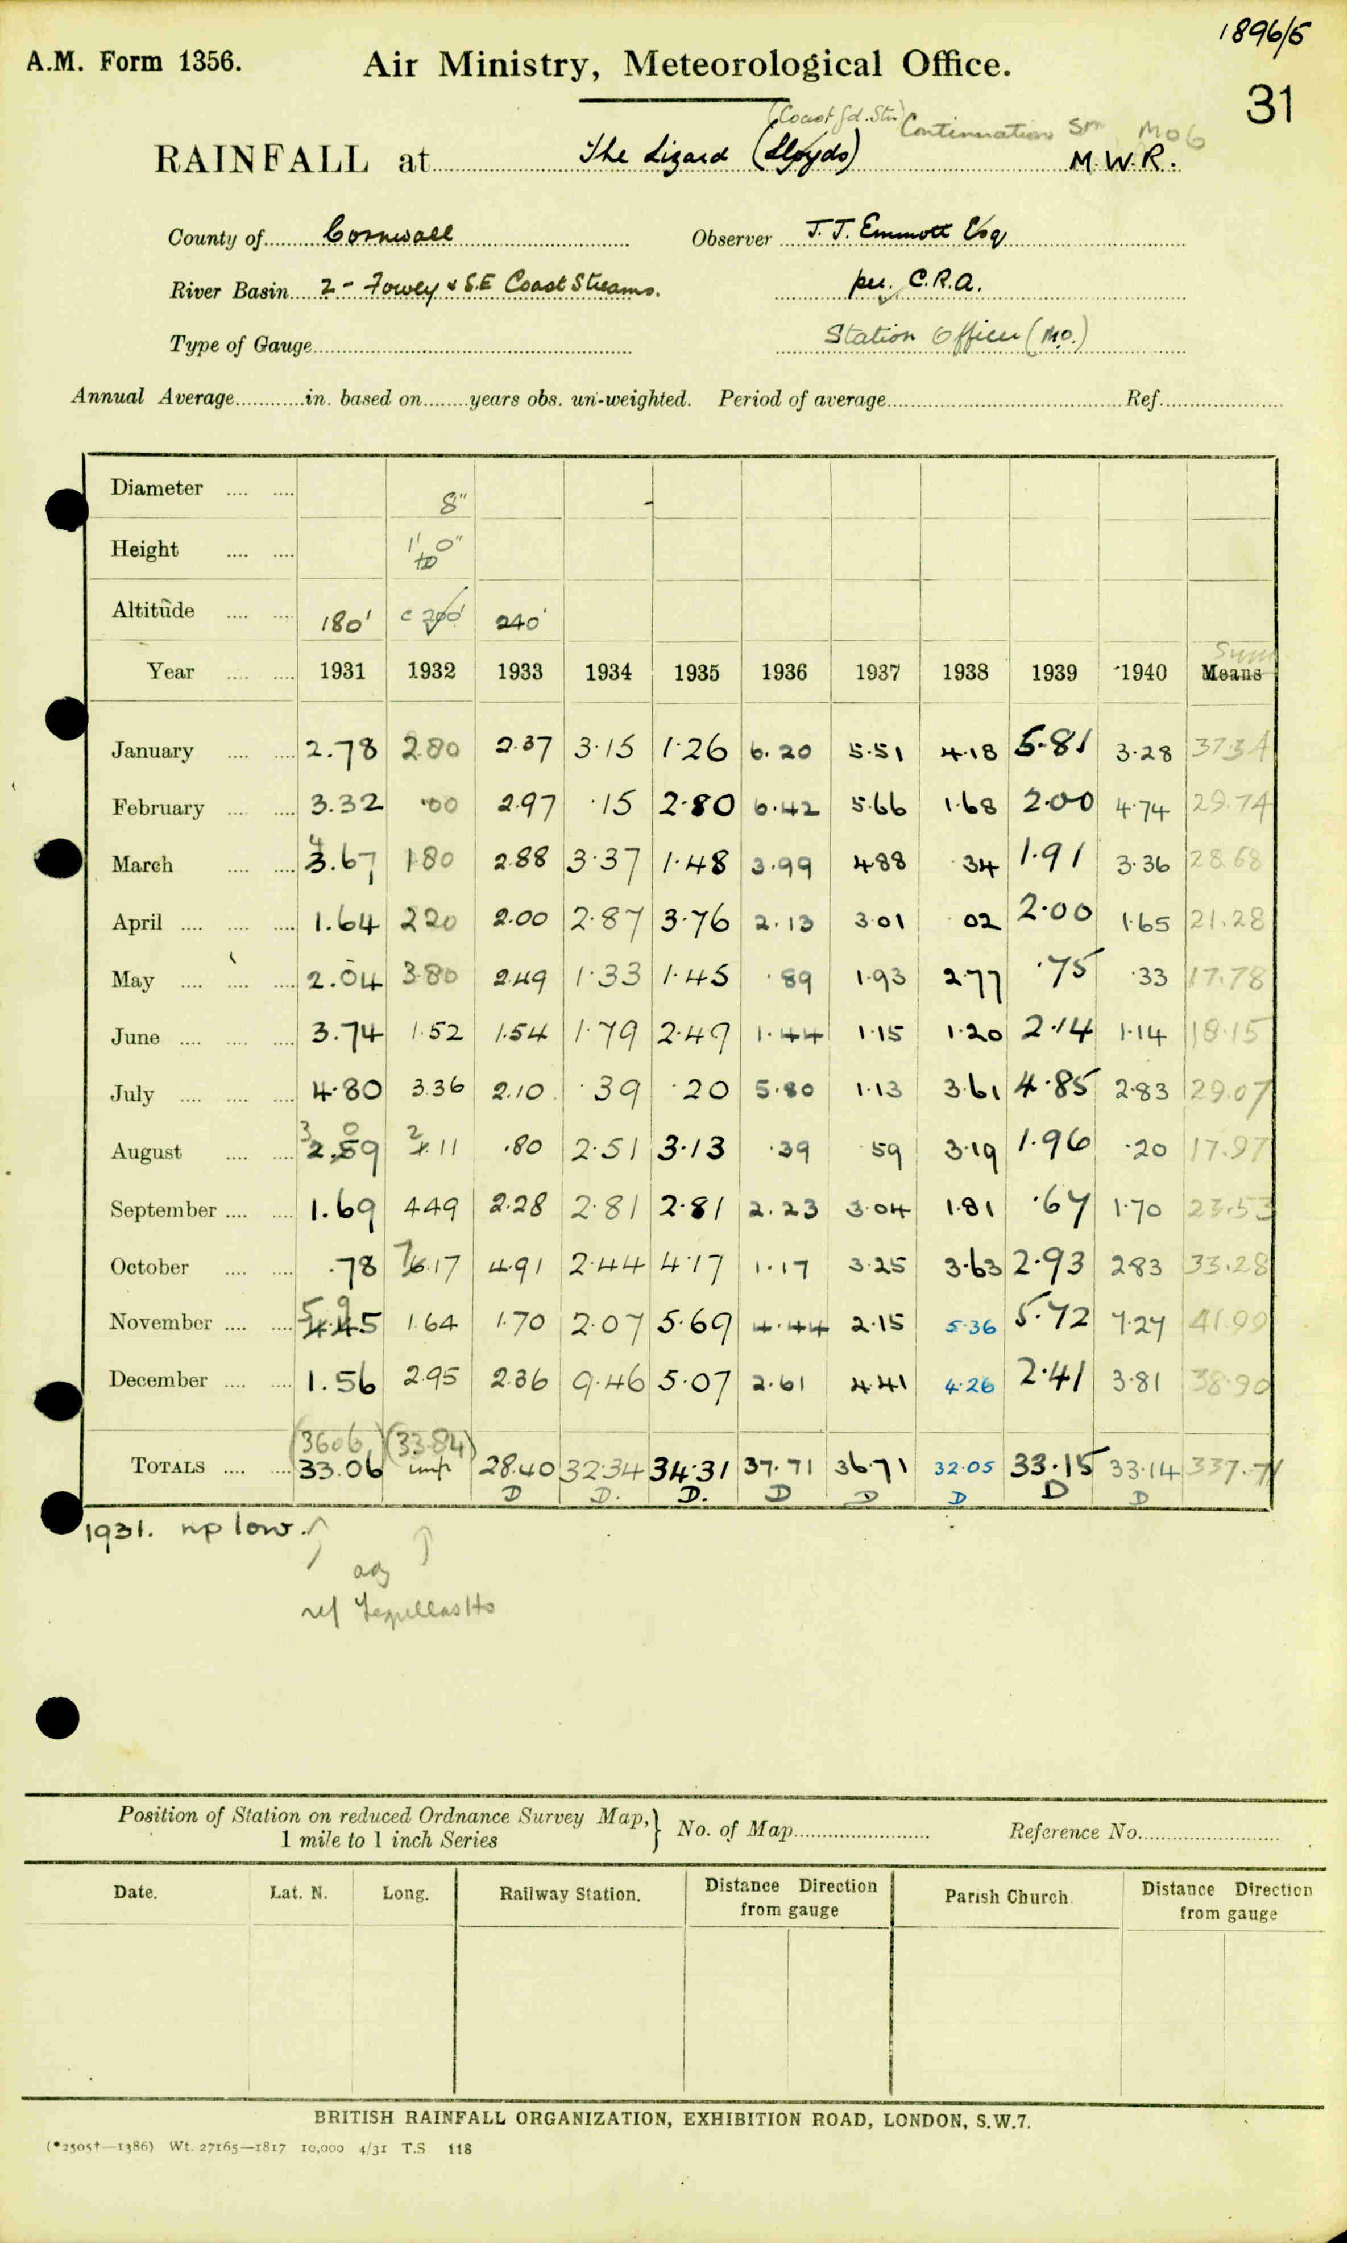 1896/5
A.M. Form 1356. Air Ministry, Meteorological Office.
31
(Coast Gd. Stn) Continuation Sm MO6
RAINFALL at The Lizard (Lloyds) M.W.R.
County of Cornwall Observer J. J. Emmott Esq
River Basin 2 - Fowey & S.E Coast Streams. per. C.R.A.
Type of Gauge Station Officer (MO.)
Annual Average in. based on years obs. un-weighted. Period of average Ref.
Diameter 8"
Height 1' 0"
Altitude 180' c 200' 240'
Year 1931 1932 1933 1934 1935 1936 1937 1938 1939 1940 Means Sum
January 2.78 2.80 2.37 3.15 1.26 6.20 5.51 4.18 5.81 3.28 37.34
February 3.32 .00 2.97 .15 2.80 6.42 5.66 1.68 2.00 4.74 29.74
4
March 3.67 1.80 2.88 3.37 1.48 3.99 4.88 .34 1.91 3.36 28.68
April 1.64 2.20 2.00 2.87 3.76 2.13 3.01 .02 2.00 1.65 21.28
May 2.04 3.80 2.49 1.33 1.45 .89 1.93 2.77 .75 .33 17.78
June 3.74 1.52 1.54 1.79 2.49 1.44 1.15 1.20 2.14 1.14 18.15
July 4.80 3.36 2.10 .39 .20 5.80 1.13 3.61 4.85 2.83 29.07
3 0 2
August 2.59 11 .80 2.51 3.13 .39 .59 3.19 1.96 .20 17.97
September 1.69 4.49 2.28 2.81 2.81 2.23 3.04 1.81 .67 1.70 23.53
7
October .78 6.17 4.91 2.44 4.17 1.17 3.25 3.63 2.93 2.83 33.28
5 9
November 4.45 1.64 1.70 2.07 5.69 4.44 2.15 5.36 5.72 7.27 41.99
December 1.56 2.95 2.36 9.46 5.07 2.61 4.41 4.26 2.41 3.81 38.90
(36.06) (33.84)
TOTALS 33.06 imp. 28.40 32.34 34.31 37.71 36.71 32.05 33.15 33.14 337.71
D D. D. D D D D D
1931. np low.
adj
ref
Position of Station on reduced Ordnance Survey Map,} No. of Map Reference No.
1 mile to 1 inch Series
Date. Lat. N. Long. Railway Station. Distance Direction from gauge Parish Church. Distance Direction from gauge
BRITISH RAINFALL ORGANIZATION, EXHIBITION ROAD, LONDON, S.W.7.
(*2505†—1386) Wt. 27165—1817 10,000 4/31 T.S. 118